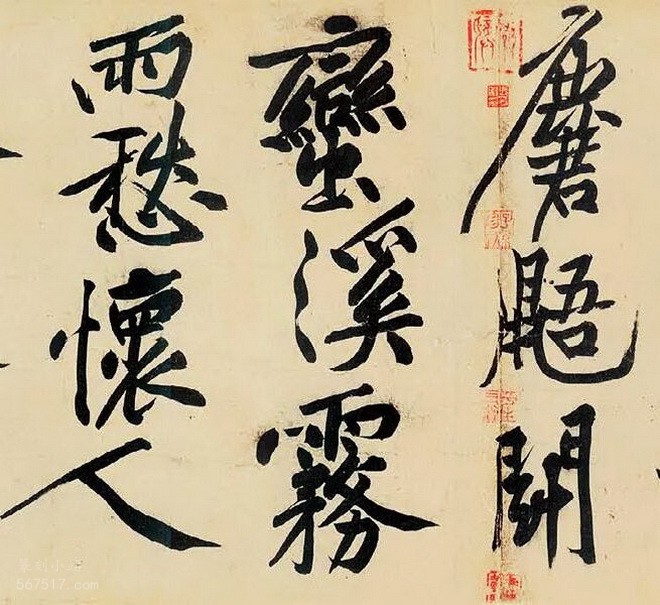 麏鼯閗
蠻溪霧
雨愁懷人
567517.com